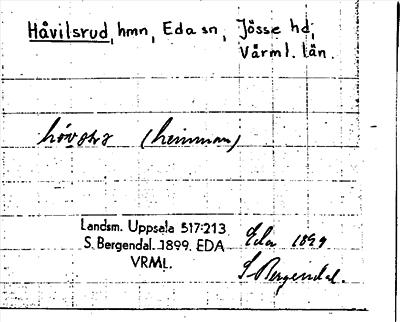 Håvilsrud, hmn, Eda sn, Jösse hd,
Värml. län.
(hemman)
Landsm. Uppsala 517:213
S. Bergendal. 1899. EDA
VRML.
Eda 1899
S Bergendal.